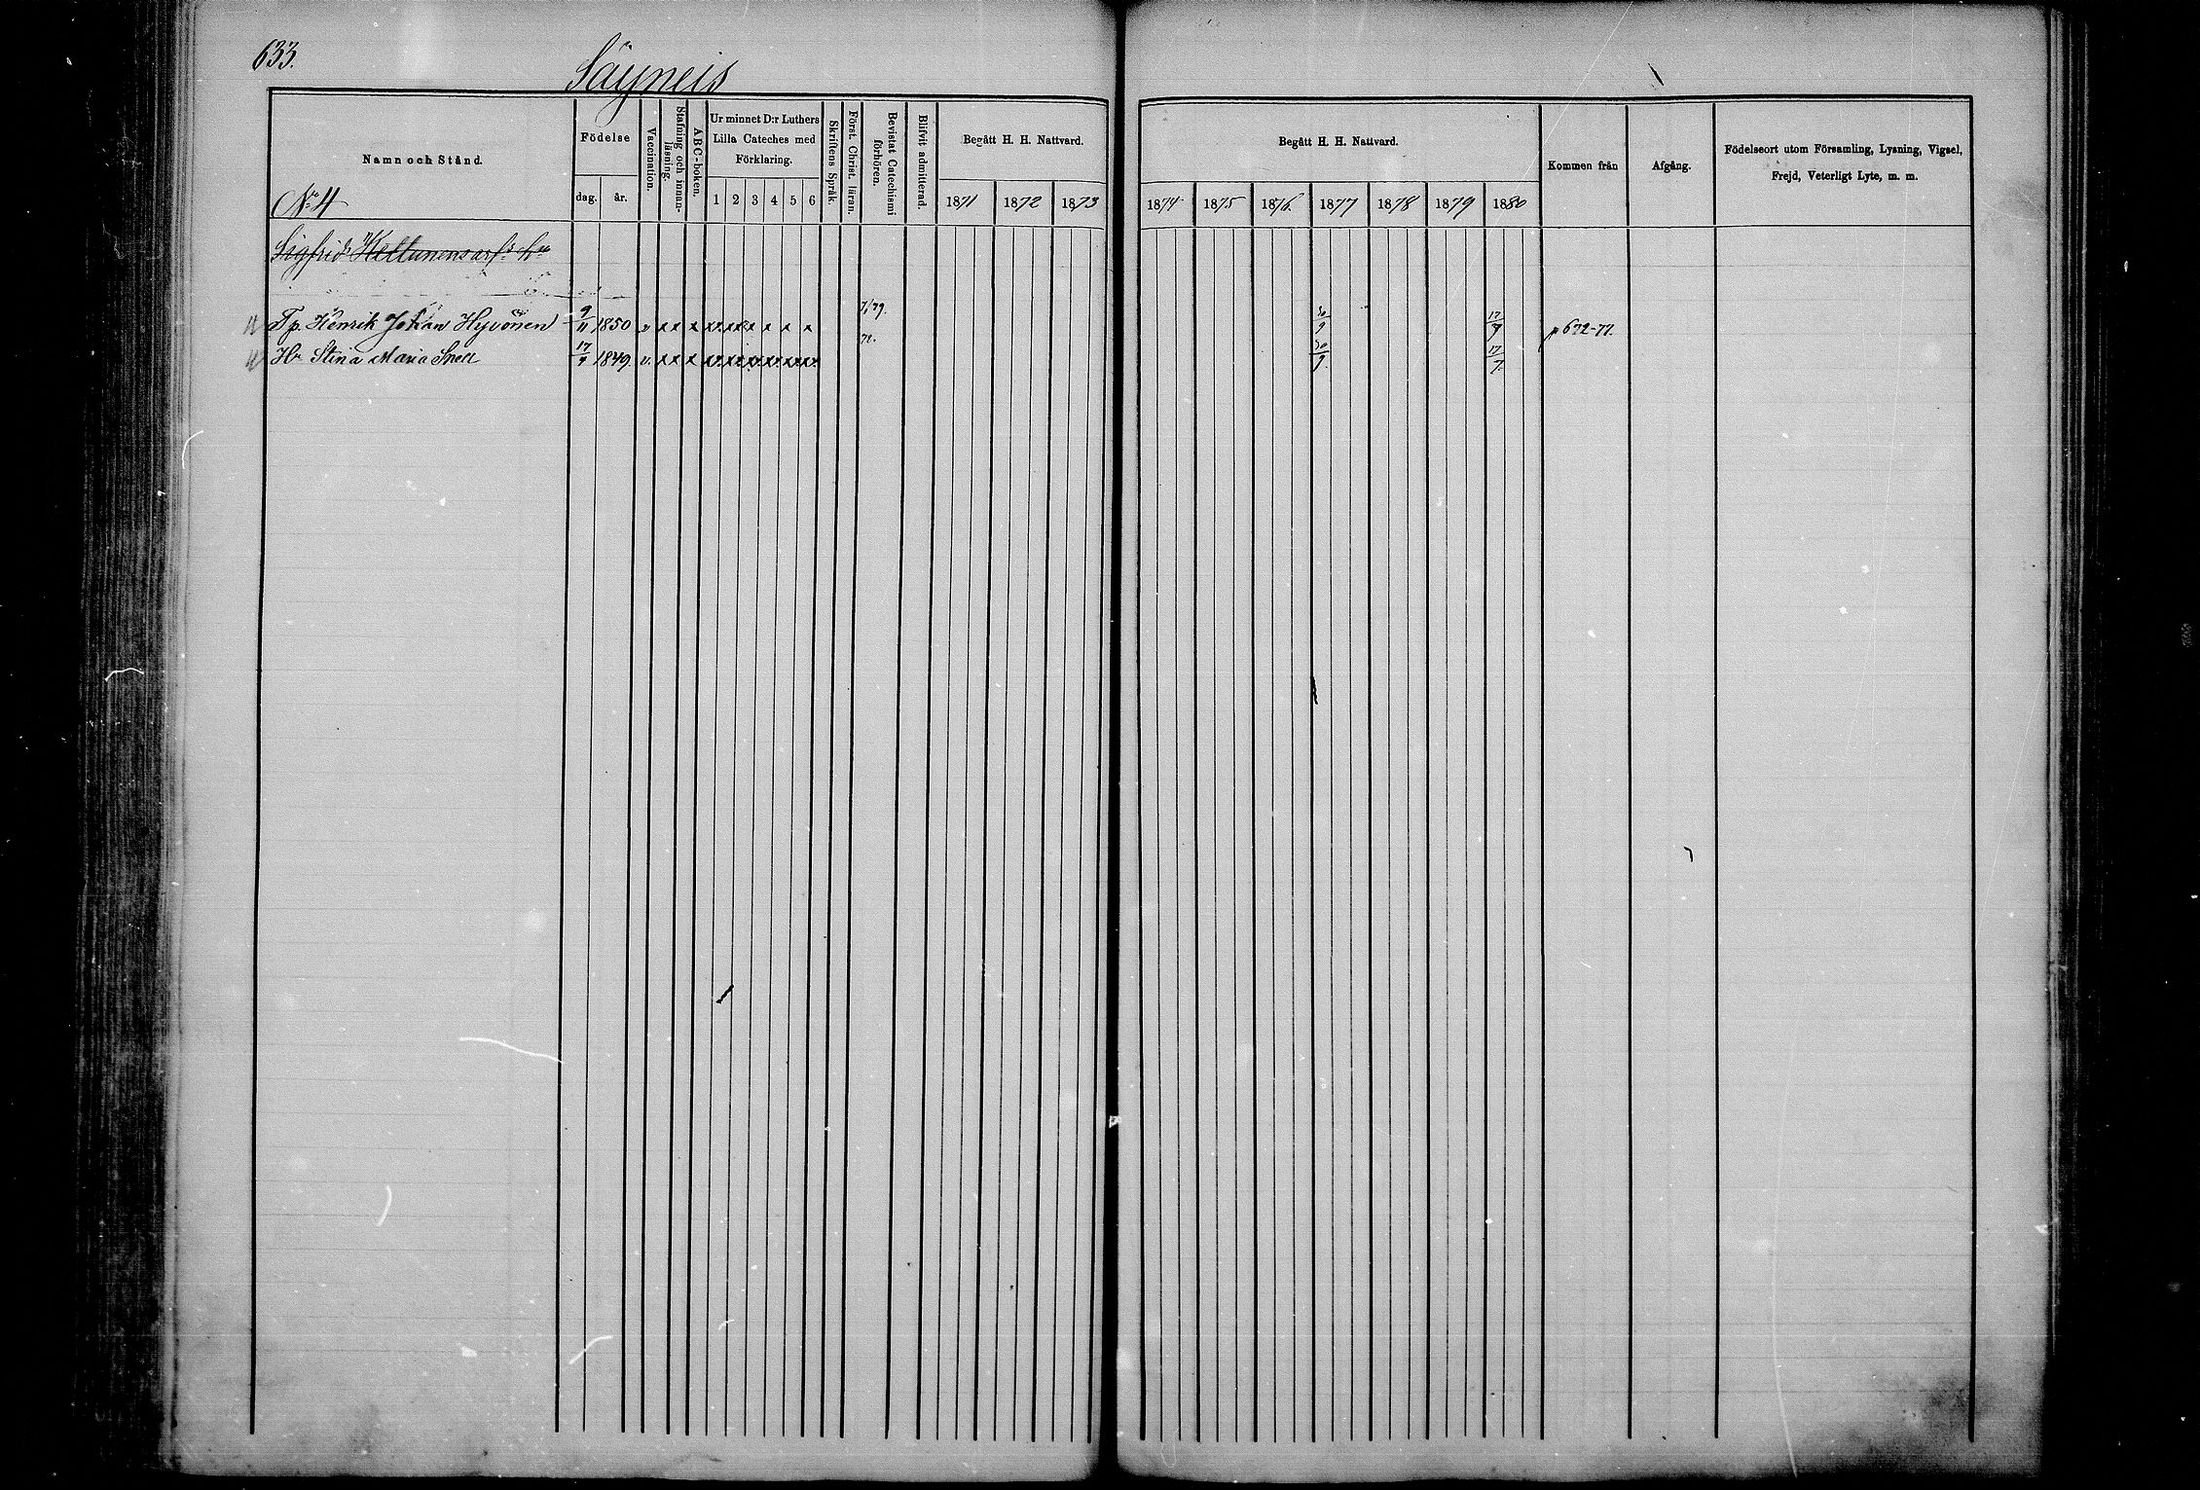 633.
Säyneis
Namn och Stånd.
Födelse
dag.
år.
Vaccination.
Stafning och innan-
läsning.
ABC-boken.
Ur minnet D:r Luthers
Lilla Cateches med
Förklaring.
1 2 3 4 5 6
Skriftens Språk.
Först. Christ. läran.
Bevistat Catechismi
förhören.
Blifvit admitterad.
Begått H. H. Nattvard.
1871 1872 1873
Begått H. H. Nattvard.
1874 1875 1876. 1877 1878 1879 1880
Kommen från
Afgång.
Födelseort utom Församling, Lysning, Vigsel,
Frejd, Veterligt Lyte, m. m.
No 4
Sigfrid
Tp. Henrik Johan Hyvönen 9/11 1850 v x x x x x x x x x 30/9 17/7 p 672-77.
Hu Stina Maria Snell 17/7 1849. v. x x x 30/9. 17/7.